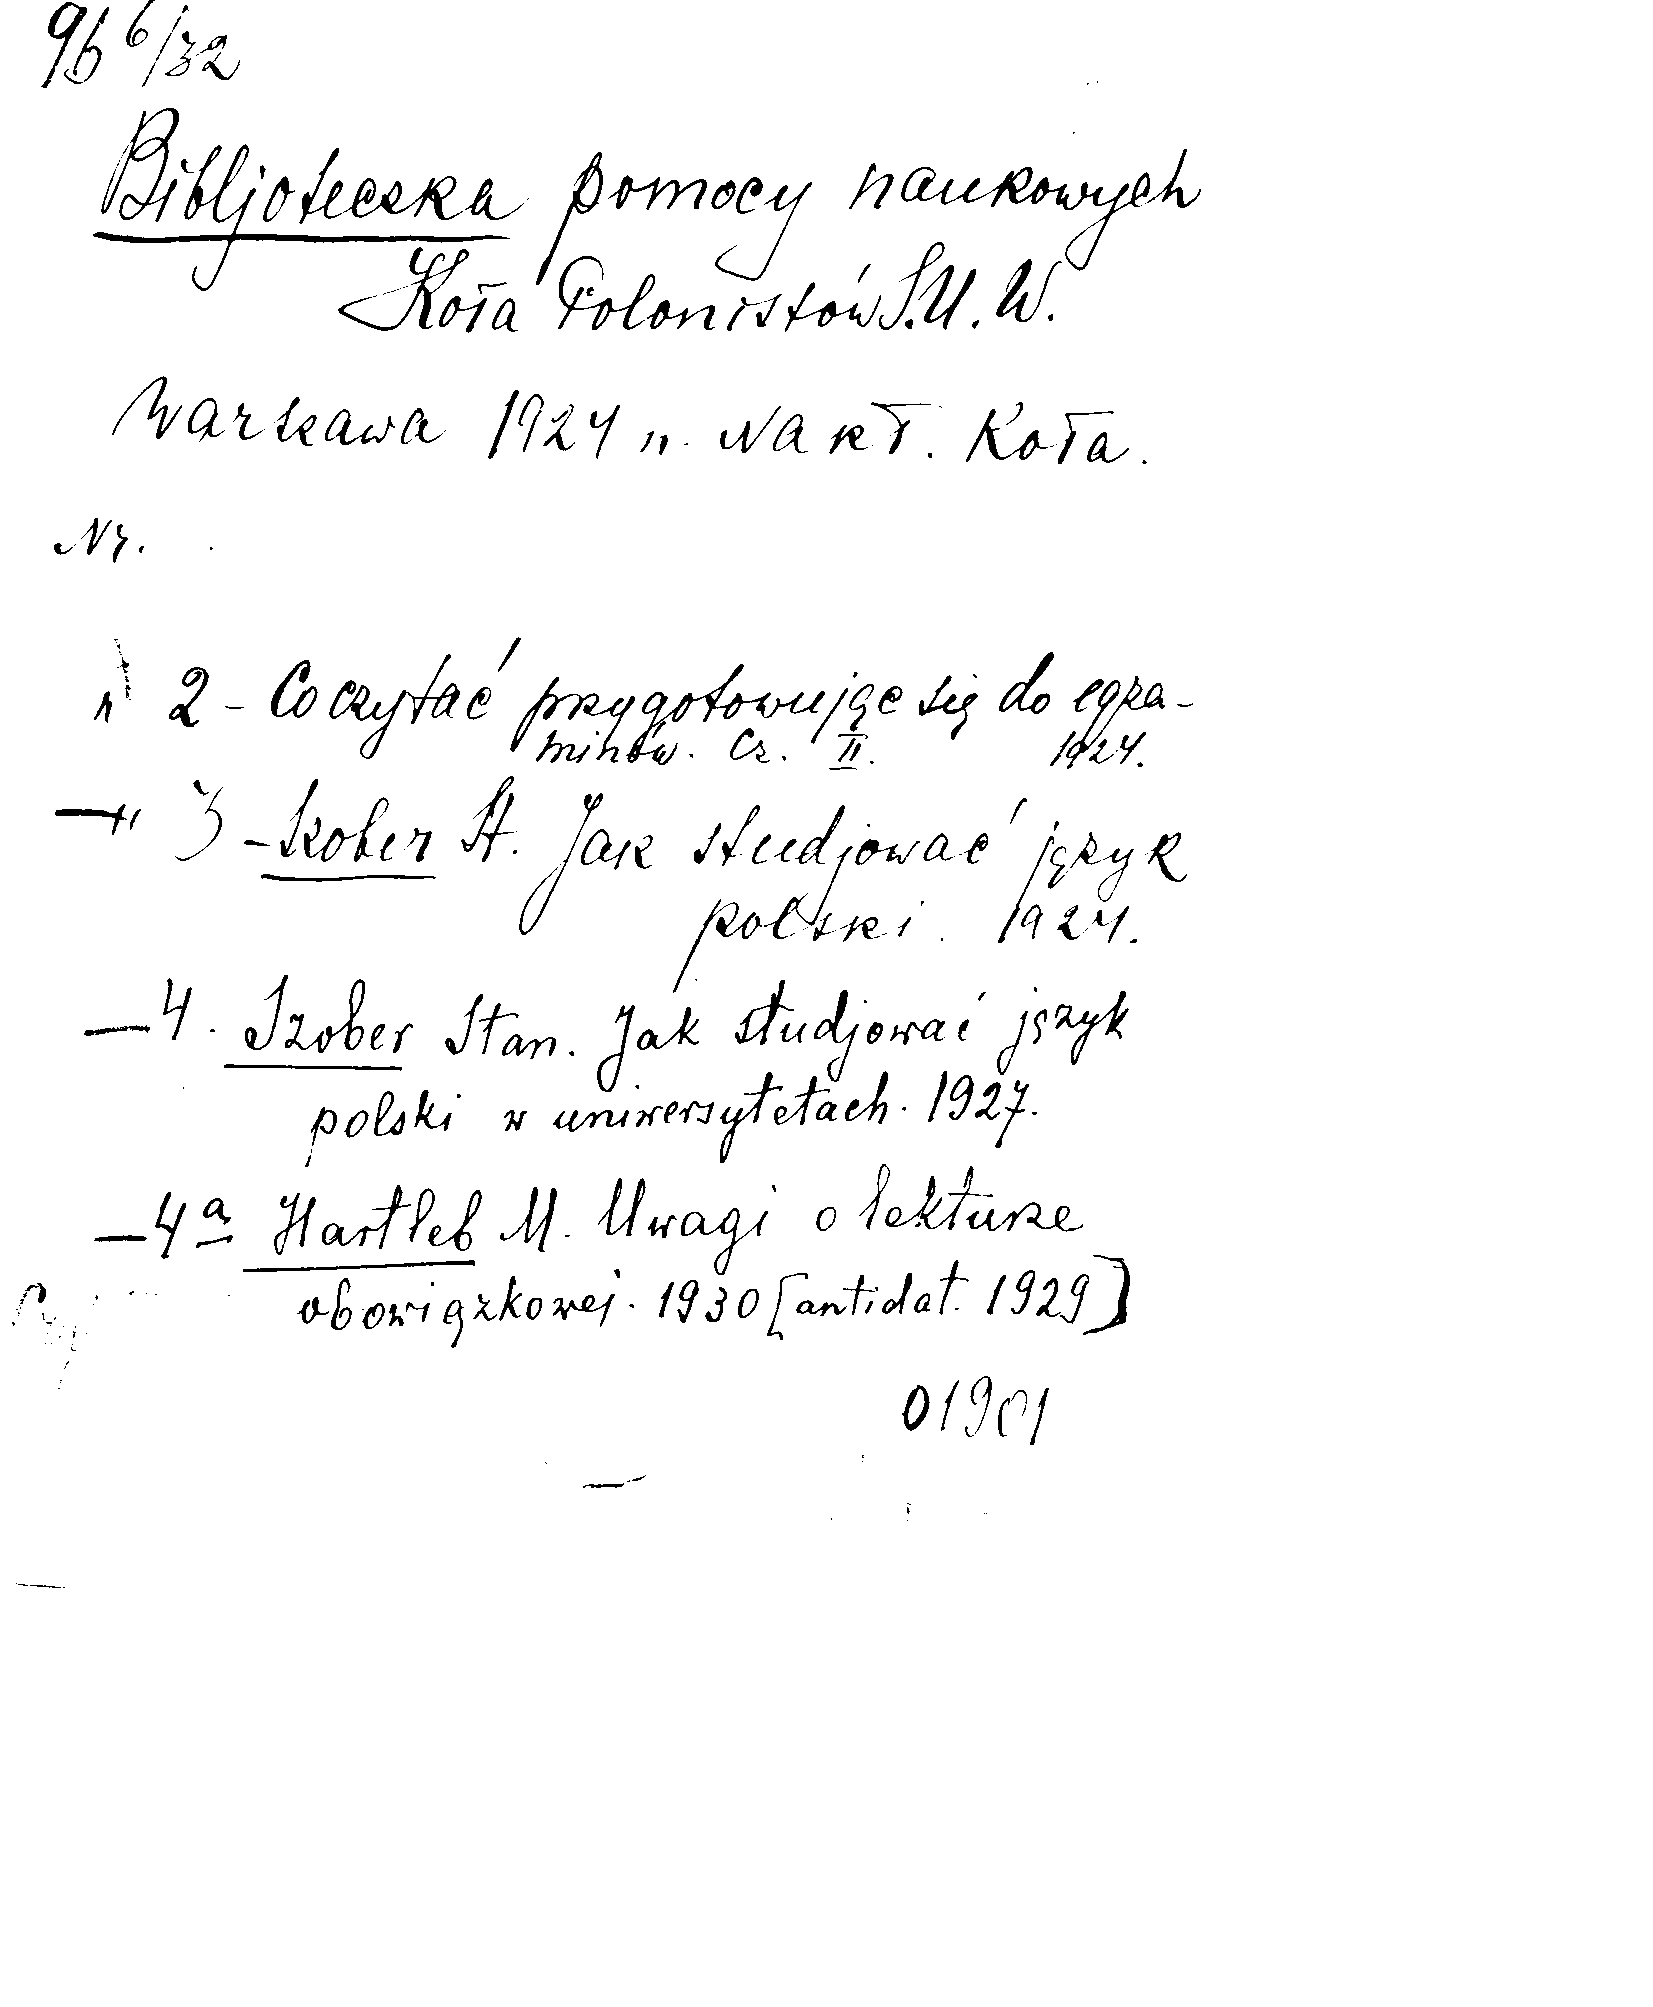 96 6/32
Bibljoteczka pomocy naukowych
Koła Polonistów S.U.W.
Warszawa 1924 n. Nakł. Koła.
Nr.
" 2 - Co czytać przygotowując się do egza-
minów. Cz. II. 1924.
—" 3 - Szober St. Jak studjować język
polski. 1924.
— 4. Szober Stan. Jak studjować język
polski w uniwersytetach. 1927.
— 4a Hartleb M. Uwagi o lekturze
obowiązkowej. 1930 [antidat. 1929]